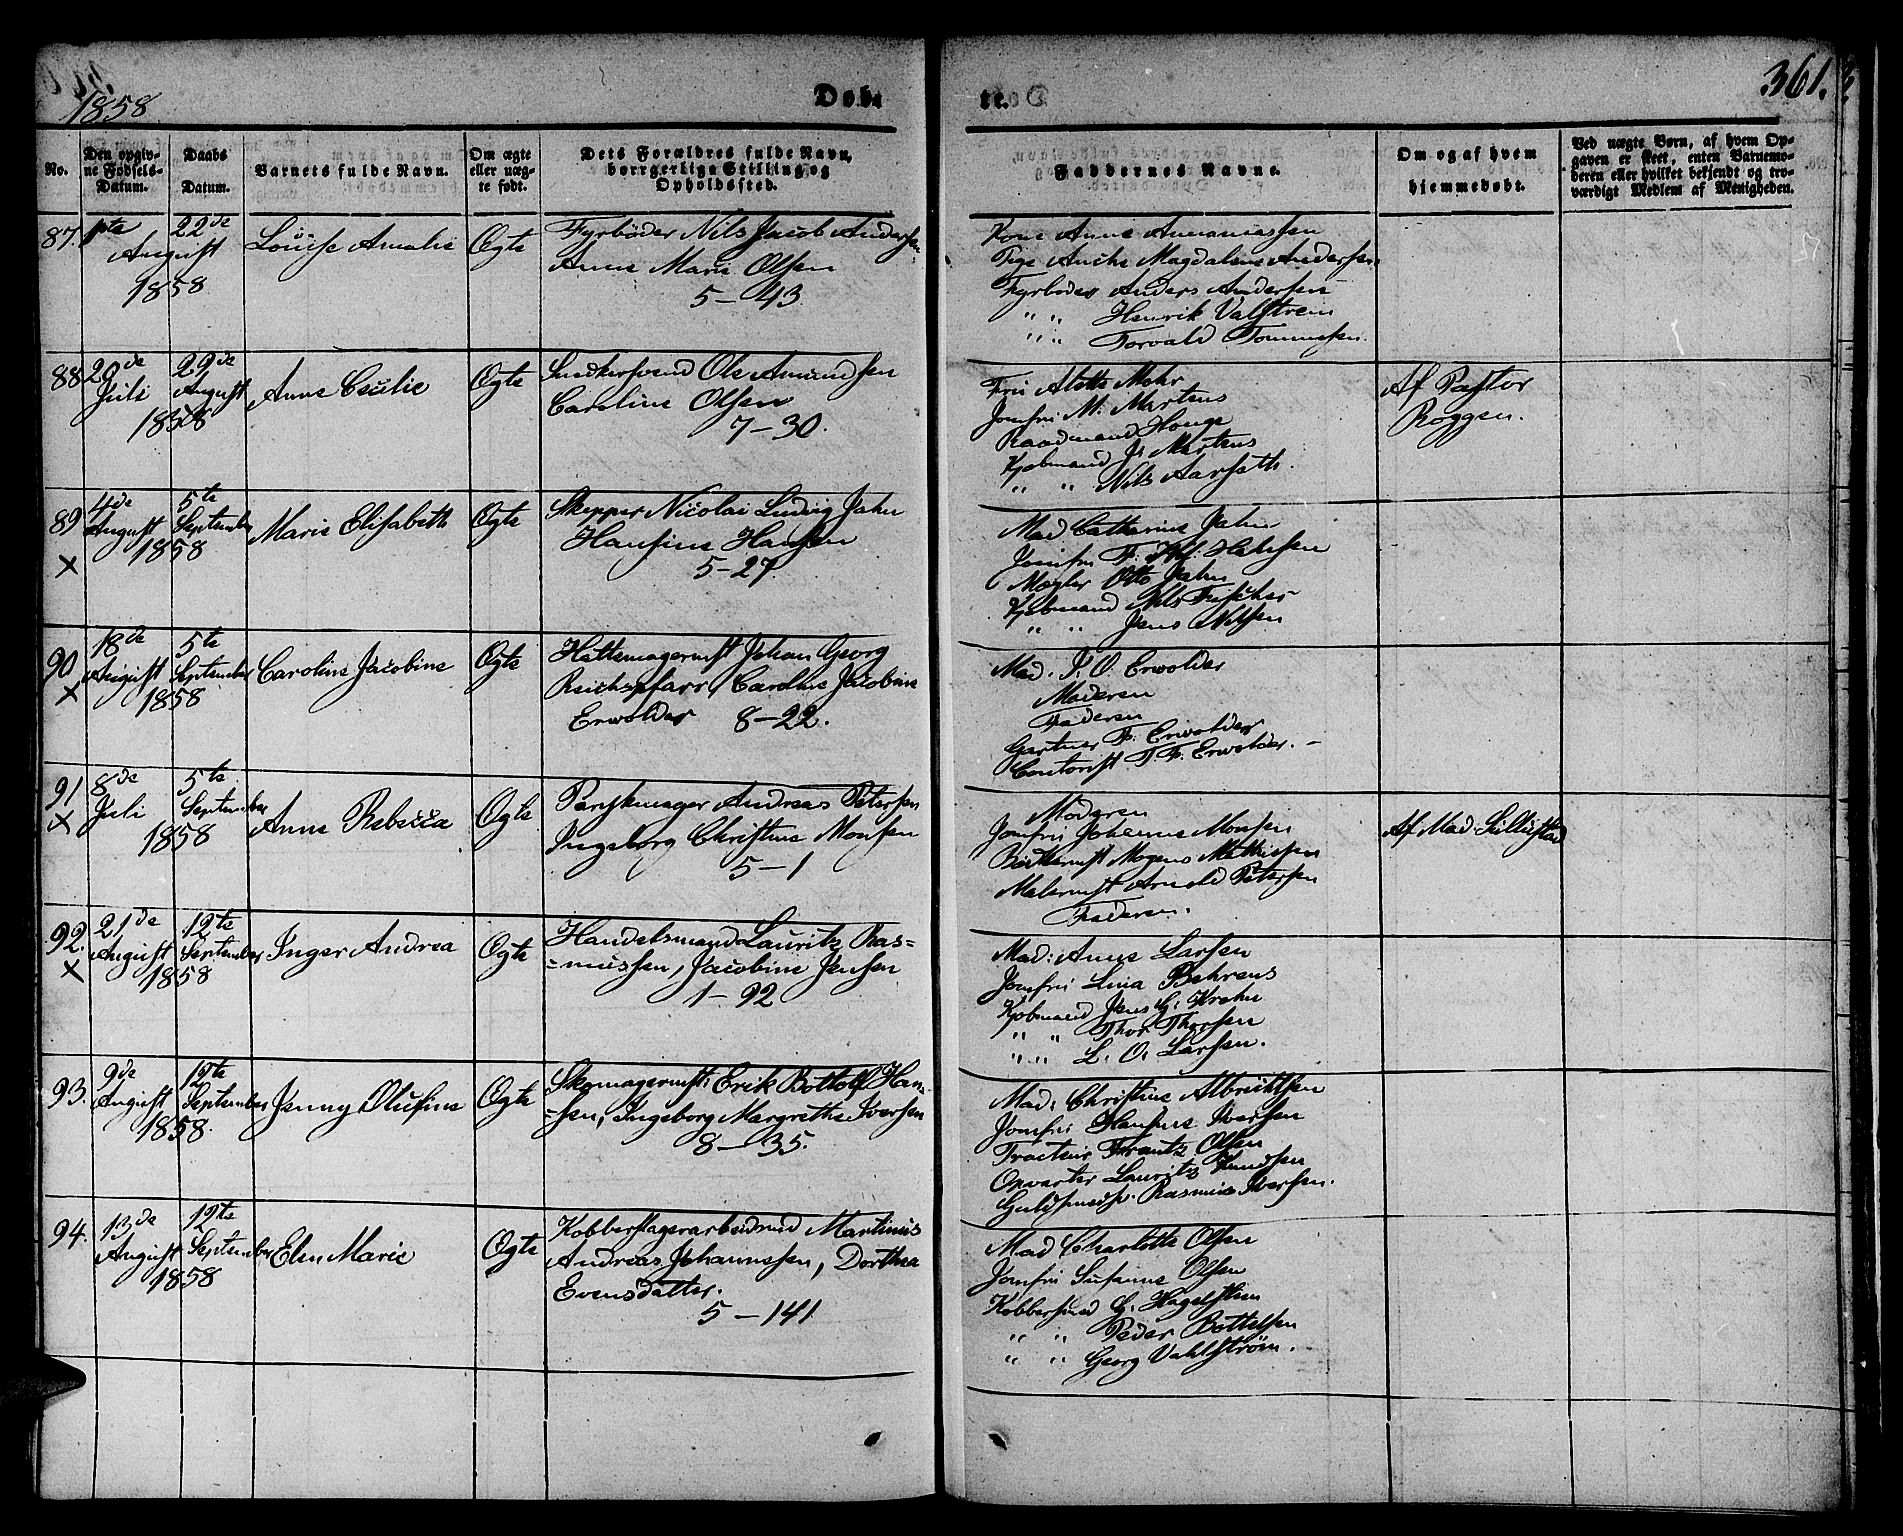 1858
Døb-
te.
361.
No.
Den opgiv-
ne Fødsels-
Datum.
Daabs
Datum.
Barnets fulde Navn.
Om ægte
eller uæg-
te født.
Dets Forældres fulde Navn,
borgerlige Stilling og
Opholdssted.
Faddernes Navne.
Om og af hvem
hjemmedøbt.
Ved uægte Børn, af hvem Op-
gaven er skeet, enten Barnemo-
deren eller hvilket bekjendt og tro-
værdigt Medlem af Menigheden.
87. 1ste August 1858
22de
Louise Amalie
Ogte
Fyrbøder Nils Jacob Andersen
Anne Marie Olsen
5-43
Kone Anne Annaniassen
Pige Anche Magdalene Andersen
Fyrbøder Anders Andersen
" " Henrik Valstrem
" " Torvald Tommesen.
88 20de Juli
29de August
1858
Anne Cecilie
Ogte
Snedkersvend Ole Amundsen
Caroline Olsen
7-30.
Fru Alette Mohr
Jomfru M. Martens
Raadmand Houge
Kjøbmand J. Martens
" " Nils Aarsath.
Af Pastor
Roggen.
89 4de August
5te September
1858
x
Marie Elisabeth
Ogte
Skepper Nicolai Ludvig Jahn
Hansine Hansen
5-27.
Mad Cathrine Jahn
Jomfru F. Hansen
Mægler Otto Jahn
Kjøbmand Nils Fischer
" " Jens Nilsen
90 18de August
5te September
1858
x
Caroline Jacobine
Ogte
Hattemagermst Johan Georg
Reichspfarr, Caroline Jacobine
Erwolder 8-22.
Mad. J. O. Erwolder
Moderen
Faderen
Gartner F. Erwolder
Contorist T. F. Erwolder. -
91 8de Juli
5te September
1858
x
Anne Rebecca
Ogte
Parykmager Andreas Petersen
Ingeborg Christine Monsen
5-1
Moderen
Jomfru Johanne Monsen
Bødkermst Mogens Mathiesen
Malermst Arnold Petersen
Faderen.
Af Mad Lillestad
92. 21de August
12te September
1858
x
Inger Andrea
Ogte
Handelsmand Lauritz Ras=
=mussen, Jacobine Jensen
1-92
Mad: Anne Larsen
Jomfru Lina Behrens
Kjøbmand Jens G. Krohn
" " Thor Thorsen
" " L. O. Larsen.
93. 9de August
12te September
1858.
Jenny Olufine
Ogte
Skomagermst: Erik Bottolf Han-
-sen, Ingeborg Margrethe Iversen
8-35.
Mad. Christine Albrichtsen
Jomfru Hansine Iversen
Tracteur Frantz Olsen
Opvarter Lauritz Knudsen
Guldsmedsv. Rasmus Iversen.
94. 13de August
12te September
1858
Elen Marie
Ogte
Kobberslagerarbeidsmd Martinus
Andreas Johannessen, Dorthea
Evensdatter.
5-141
Mad Charlotte Olsen
Jomfru Susanne Olsen
Kobbersmed G. Hagelstien
" " Peder Bottelsen
" " Georg Vahlstrøm.